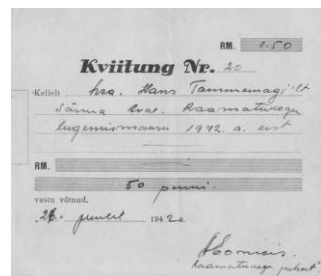 RM. 0.50
Kviitung Nr. 20
Kellelt hra. Hans Tammemägi'lt
Sänna Raamatukogu
lugemismaksu 1942. a. eest
RM.
50 penni.
vastu võtnud.
"26." juunil 1942 a.
Raamatukogu juhat.